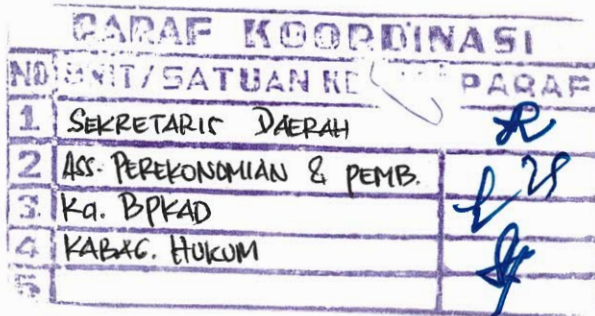 PARAF KOORDINASI
NO UNIT/SATUAN KE PARAF
1 SEKRETARIS DAERAH
2 ASS. PEREKONOMIAN & PEMB.
3. Ka. BPKAD
4 KABAG. HUKUM
5